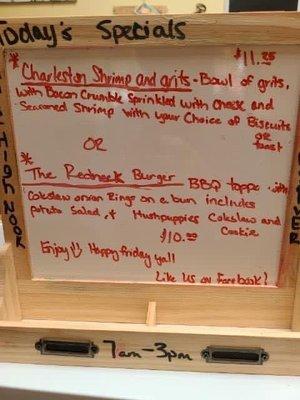 Today's Specials
$11.25
* Charleston Shrimp and grits - Bowl of grits,
with Bacon Crumble Sprinkled with Cheese and
Seasoned Shrimp with your Choice of Biscuits
or
toast
OR
*
The Redneck Burger BBQ toppe with
Coleslaw onion Rings on a bun includes
potato Salad, & Hushpuppies Coleslaw and
Cookie
$10.00
Enjoy!! Happy friday yall
Like us on Facebook!
High Nook
7am-3pm